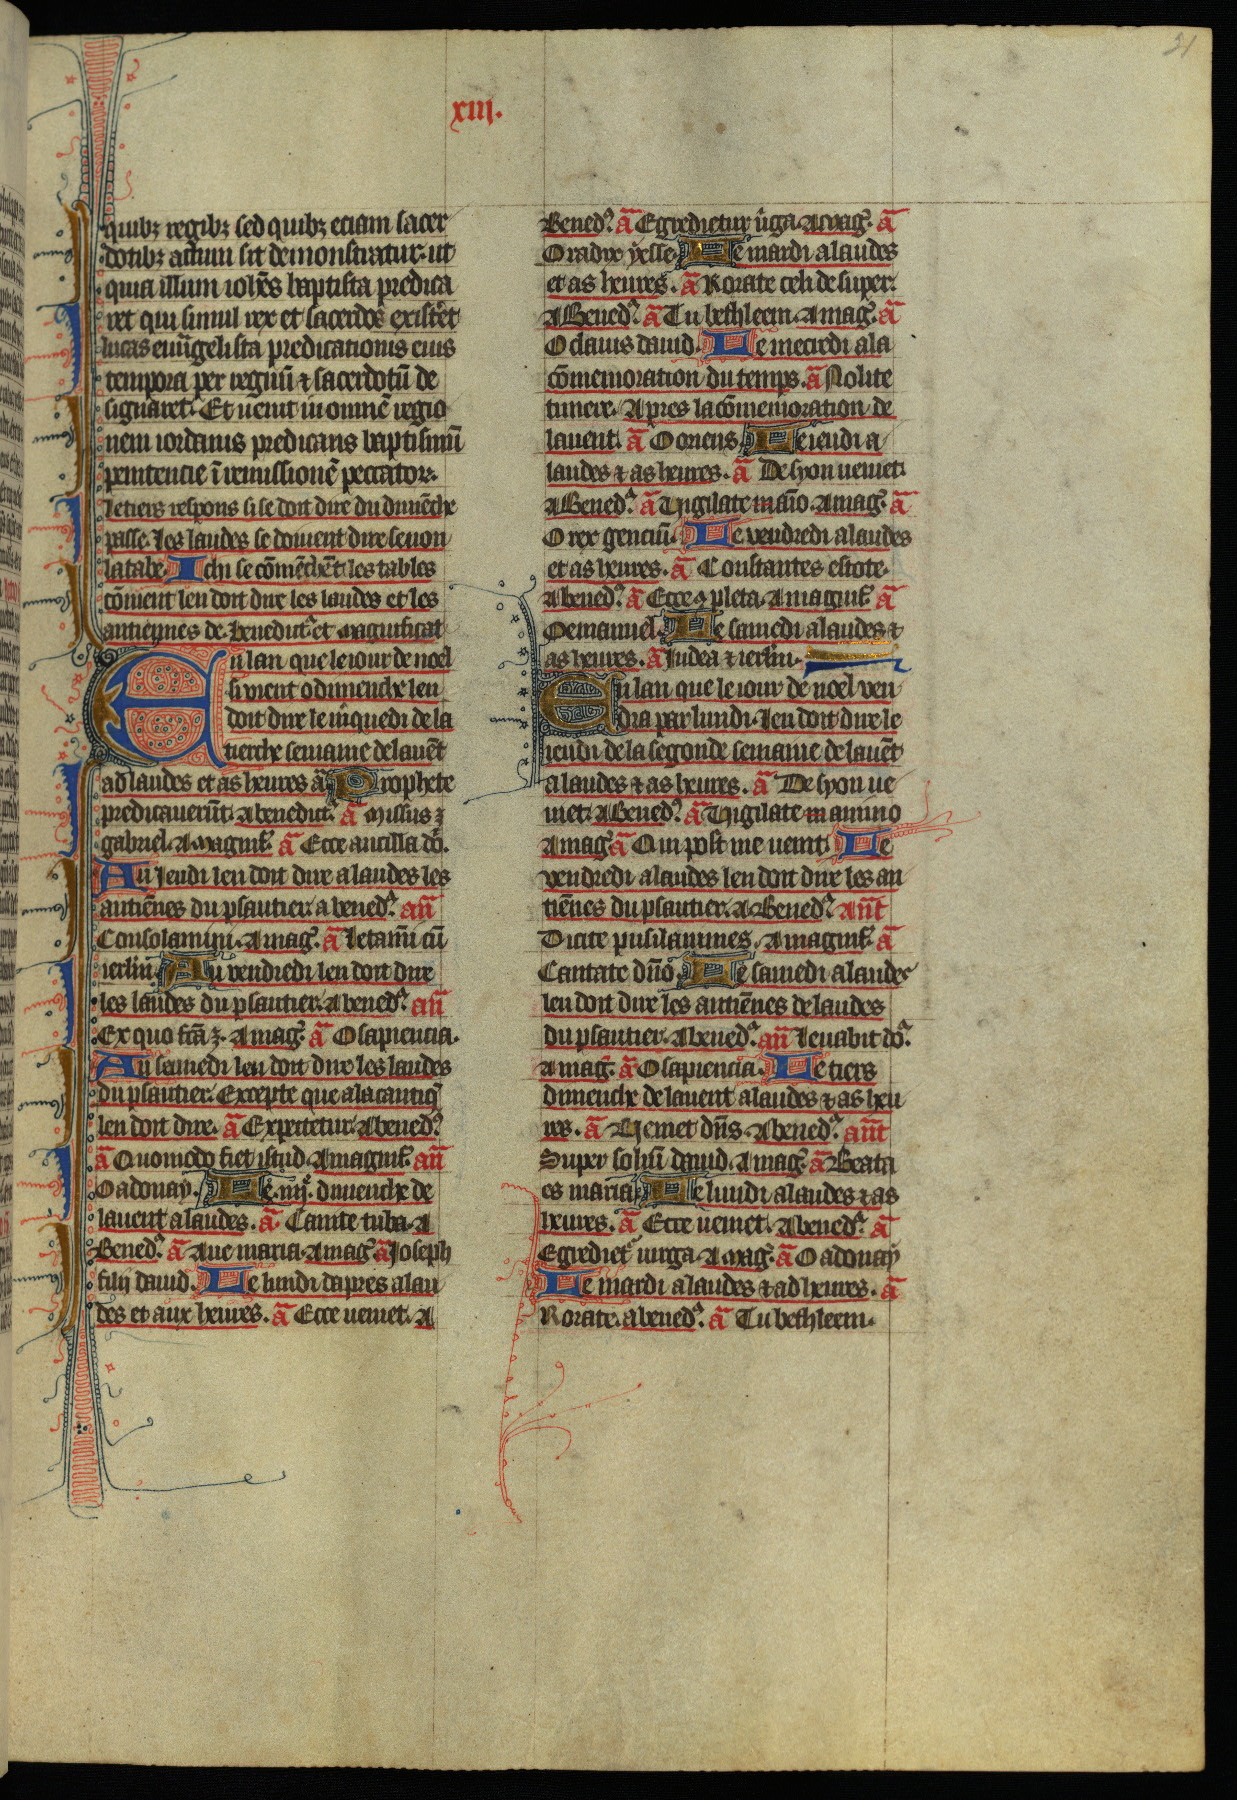 21
xiii.
quibꝫ regibꝫ sed quibꝫ eciam sacer
dotibꝫ actum sit demonstratur. ut
quia illum ioh̃es baptista predica
ret qui simul rex et sacerdos exist̃et
lucas euũgelista predicationis eius
tempora per regnũ ⁊ sacerdotũ de
signaret. Et uenit in omnẽ regio
nem iordanis predicans baptismũ
penitencie ĩ remissionẽ peccator.
Le tiers respons si se doit dire du dimẽche
passe. Les laudes se doiuent dire selon
la table. Ichi se cõmẽchẽt les tables
cõment len doit dire les laudes et les
antiepnes de benedictꝰ et magnificat
En lan que le iour de noel
si vient o dimenche len
doit dire le m̃quedi de la
tierche semaine de lauẽt
ad laudes et as heures ã Prophete
predicauerũt. A benedict̕. ã Missus ꝫ
gabriel. A magnif̕. ã Ecce ancilla dõ.
Au Jeudi len doit dire a laudes les
antiẽnes du psautier. a bened̕. añ
Consolamini. A mag̕. ã Letamĩ cũ
ierl̃m. Au vendredi len doit dire
les laudes du psautier. A bened̕. añ
Ex quo fc̃a ꝫ. A mag̕. ã O sapiencia.
Au semedi len doit dire les laudes
du psautier. Excepte que a la cantiq̃
len doit dire. ã Expectetur. A bened̕.
ã Quomodo fiet istud. A magnif̕. añ
O adonay. Le .iiij.ͤ dimenche de
lauent a laudes. ã. Canite tuba. A
Bened̕. ã Aue maria. A mag̕. ã Joseph
filij dauid. Le lundi dapres a lau
des et aux heures. ã Ecce ueniet. A
Bened̕. ã Egredietur ũga. A mag̕. ã
O radix yesse. Le mardi a laudes
et as heures. ã Rorate celi desuper.
A Bened̕. ã Tu bethleem. A mag̕. ã
O clauis dauid. Le mecredi a la
cõmemoration du temps. ã Nolite
timere. Apres la cõmemoration de
lauent. ã O oriens. Le ieudi a
laudes ⁊ as heures. ã De syon ueniet.
A Bened̕. ã Vigilate in aĩo. A mag̕. ã
O rex genciũ. Le vendredi a laudes
et as heures. ã Constantes estote.
A bened̕. ã Ecce ꝯpleta. A magnif̕. ã
O emanuel. Le samedi a laudes ⁊
as heures. ã Iudea ⁊ ierl̃m.
En lan que le iour de noel ven
dra par lundi. Len doit dire le
ieudi de la segonde semaine de lauẽt
a laudes ⁊ as heures. ã De syon ue
niet. A Bened̕. ã Vigilate in animo
A mag̕ ã Qui post me uenit. Le
vendredi a laudes len doit dire les an
tiẽnes du psautier. A Bened̕. Añt
Dicite pusilanimes. A magnif̕. ã
Cantate dño. Le samedi a laudes
len doit dire les antiẽnes de laudes
du psautier. A bened̕. añ Leuabit dõ.
A mag̕. ã O sapiencia. Le tiers
dimenche de lauent a laudes ⁊ as heu
res. ã Veniet dñs. A bened̕. añt
Super soliũ dauid. A mag̕. ã Beata
es maria. Le lundi a laudes ⁊ as
heures. ã Ecce ueniet. A bened̕. ã
Egrediet̃ uirga. A mag̕. ã O adonay
Le mardi a laudes ⁊ ad heures. ã
Rorate. a bened̕. ã Tu bethleem.